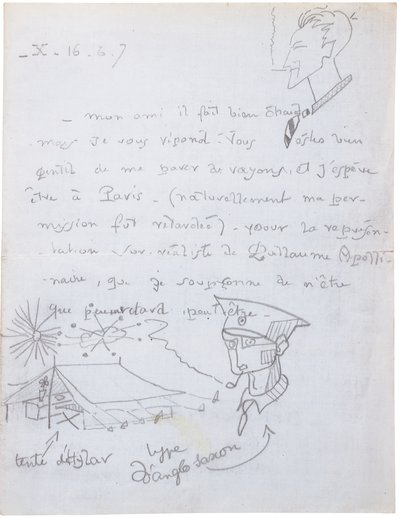 _ X _ 16. 6. 7
_ mon ami il fait bien chaud
mais je vous répond. Vous êtes bien
gentil de me parer de rayons, et j'espère
être à Paris _ (naturellement ma per-
mission fut retardée) _ pour la représen-
tation sur-réaliste de Guillaume Apolli-
naire, que je soupçonne de n'être
que peut-être _
tente d'Hylar
type
d'anglo saxon